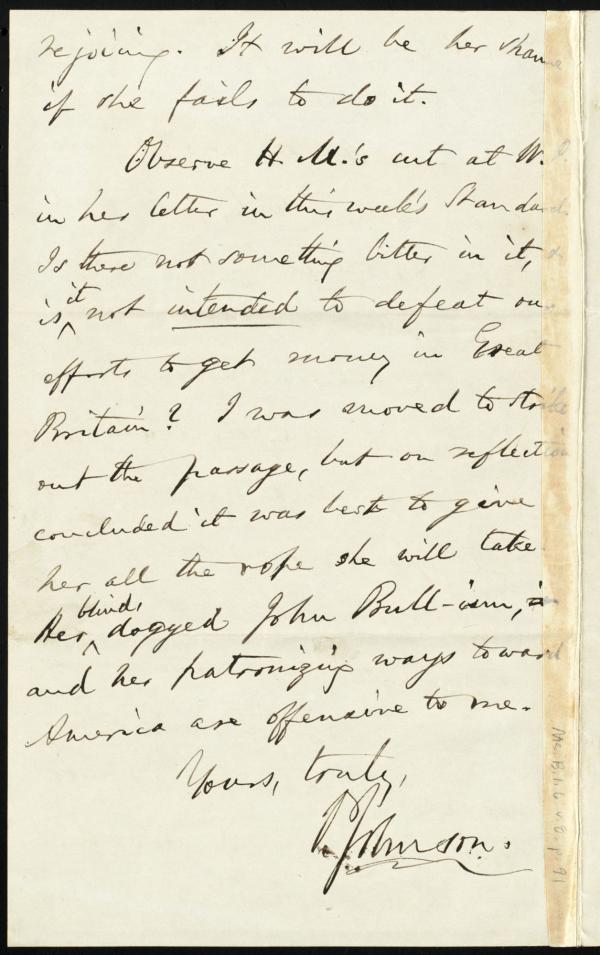 rejoicing. It will be her shame
if she fails to do it.
Observe H. M.'s cut at W.
in her letter in this week's Standard
Is there not something bitter in it, &
is it not intended to defeat our
efforts to get money in Great
Britain? I was moved to strike
out the passage, but on reflection
concluded it was best to give
her all the rope she will take
Her blind, dogged John Bull-ism,
and her patronizing ways toward
America are offensive to me.
Yours, truly,
O. Johnson.
Ms. B.1.6 v.8. p.91